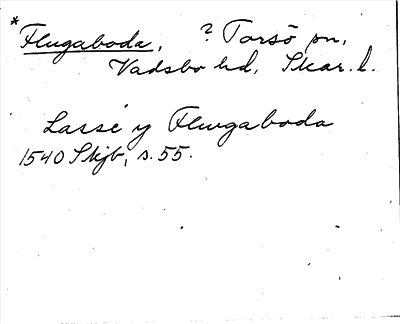 * Flugaboda, ? Torsö sn,
Vadsbo hd, Skar. l.
Lasse y Flwgaboda
1540 Skjb, s. 55.